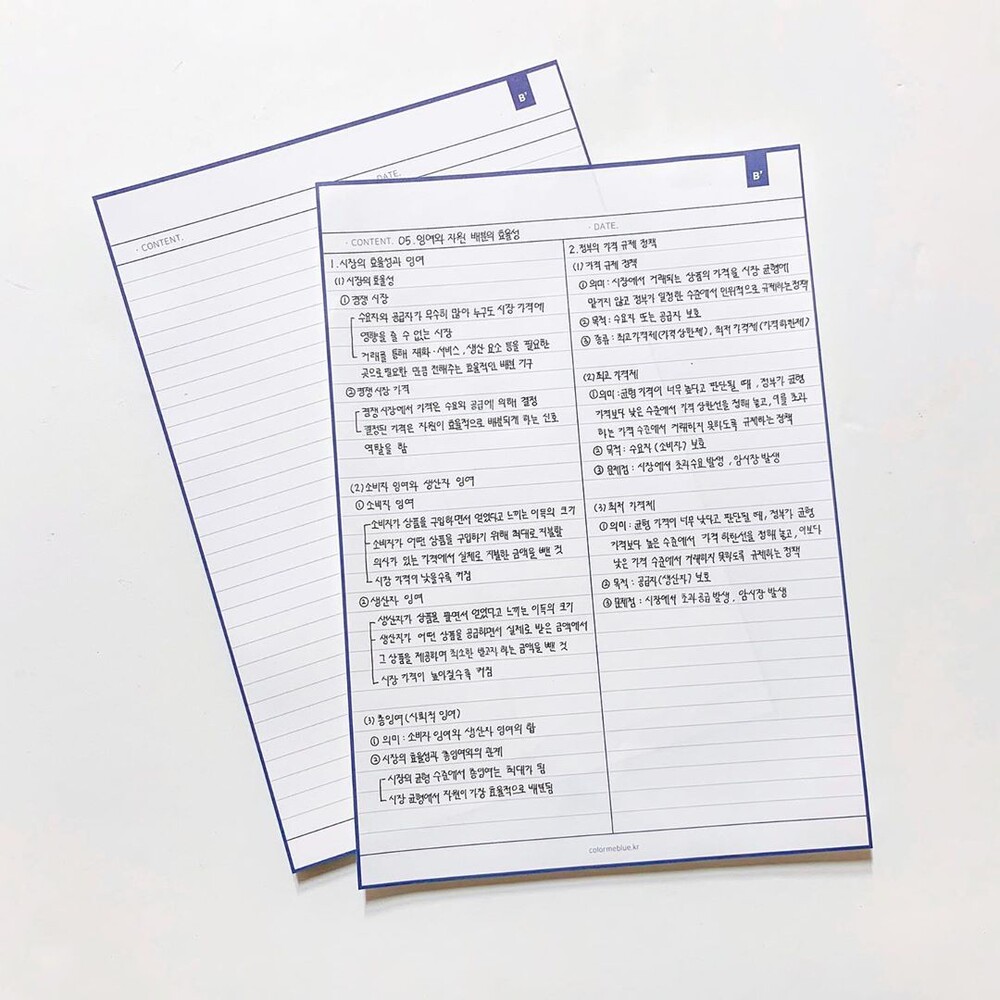 B'
DATE.
· CONTENT.
B'
· CONTENT. 05. 잉여와 자원 배분의 효율성
· DATE.
1. 시장의 효율성과 잉여
(1) 시장의 효율성
① 경쟁 시장
수요자와 공급자가 무수히 많아 누구도 시장 가격에
영향을 줄 수 없는 시장
거래를 통해 재화·서비스, 생산 요소 등을 필요한
곳으로 필요한 만큼 전해주는 효율적인 배분 기구
② 경쟁 시장 가격
경쟁 시장에서 가격은 수요와 공급에 의해 결정
결정된 가격은 자원이 효율적으로 배분되게 하는 신호
역할을 함
(2) 소비자 잉여와 생산자 잉여
① 소비자 잉여
소비자가 상품을 구입하면서 얻었다고 느끼는 이득의 크기
소비자가 어떤 상품을 구입하기 위해 최대로 지불할
의사가 있는 가격에서 실제로 지불한 금액을 뺀 것
시장 가격이 낮을수록 커짐
② 생산자 잉여
생산자가 상품을 팔면서 얻었다고 느끼는 이득의 크기
생산자가 어떤 상품을 공급하면서 실제로 받은 금액에서
그 상품을 제공하며 최소한 받고자 하는 금액을 뺀 것
시장 가격이 높아질수록 커짐
(3) 총잉여 (사회적 잉여)
① 의미 : 소비자 잉여와 생산자 잉여의 합
② 시장의 효율성과 총잉여와의 관계
시장의 균형 수준에서 총잉여는 최대가 됨
시장 균형에서 자원이 가장 효율적으로 배분됨
2. 정부의 가격 규제 정책
(1) 가격 규제 정책
① 의미 : 시장에서 거래되는 상품의 가격을 시장 균형에
맡기지 않고 정부가 일정한 수준에서 인위적으로 규제하는 정책
② 목적 : 수요자 또는 공급자 보호
③ 종류 : 최고가격제(가격상한제), 최저가격제(가격하한제)
(2) 최고 가격제
① 의미 : 균형 가격이 너무 높다고 판단될 때, 정부가 균형
가격보다 낮은 수준에서 가격 상한선을 정해 놓고, 이를 초과
하는 가격 수준에서 거래하지 못하도록 규제하는 정책
② 목적 : 수요자 (소비자) 보호
③ 문제점 : 시장에서 초과수요 발생, 암시장 발생
(3) 최저 가격제
① 의미 : 균형 가격이 너무 낮다고 판단될 때, 정부가 균형
가격보다 높은 수준에서 가격 하한선을 정해 놓고, 이보다
낮은 가격 수준에서 거래하지 못하도록 규제하는 정책
② 목적 : 공급자(생산자) 보호
③ 문제점 : 시장에서 초과 공급 발생, 암시장 발생
colormeblue.kr